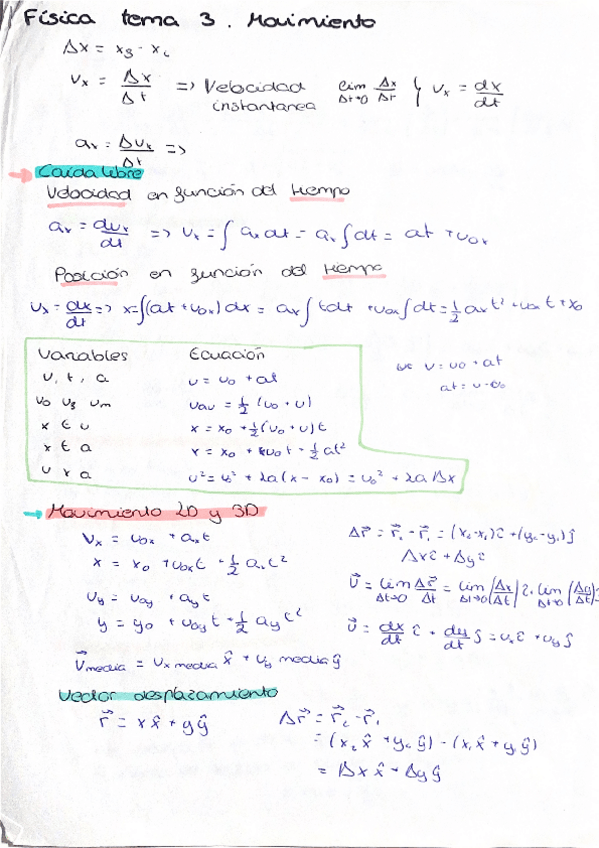 Física tema 3. Movimiento
Δx = x_f - x_i
v_x = Δx/Δt => Velocidad instantanea lim Δt→0 Δx/Δt } v_x = dx/dt
a_x = Δv_x/Δt =>
Caída libre
Velocidad en función del tiempo
a_x = dv_x/dt => v_x = ∫ a_x dt = a_x ∫ dt = at + v_0x
Posición en función del tiempo
v_x = dx/dt => x = ∫(at + v_0x) dx = a_x ∫ t dt + v_0x ∫ dt = 1/2 a_x t² + v_0x t + x_0
Variables Ecuación
v, t, a v = v_0 + at
v_0 v_f v_m v_av = 1/2 (v_0 + v)
x t v x = x_0 + 1/2 (v_0 + v) t
x t a x = x_0 + v_0 t + 1/2 at²
v x a v² = v_0² + 2a(x - x_0) = v_0² + 2aΔx
v = v_0 + at
at = v - v_0
Movimiento 2D y 3D
v_x = v_0x + a_x t
x = x_0 + v_0x t + 1/2 a_x t²
v_y = v_0y + a_y t
y = y_0 + v_0y t + 1/2 a_y t²
v⃗_media = v_x media x̂ + v_y media ŷ
Δr⃗ = r⃗_2 - r⃗_1 = (x_2 - x_1) î + (y_2 - y_1) ĵ
Δx î + Δy î
v⃗ = lim Δt→0 Δr⃗/Δt = lim Δt→0 (Δx/Δt) î + lim Δt→0 (Δy/Δt)
v⃗ = dx/dt î + dy/dt ĵ = v_x î + v_y ĵ
Vector desplazamiento
r⃗ = x x̂ + y ŷ
Δr⃗ = r⃗_2 - r⃗_1
= (x_2 x̂ + y_2 ŷ) - (x_1 x̂ + y_1 ŷ)
= Δx x̂ + Δy ŷ